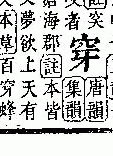 突
者
穿
唐韻
集韻
滄海郡註本皆
夢欲上天有
本草百穿蜂